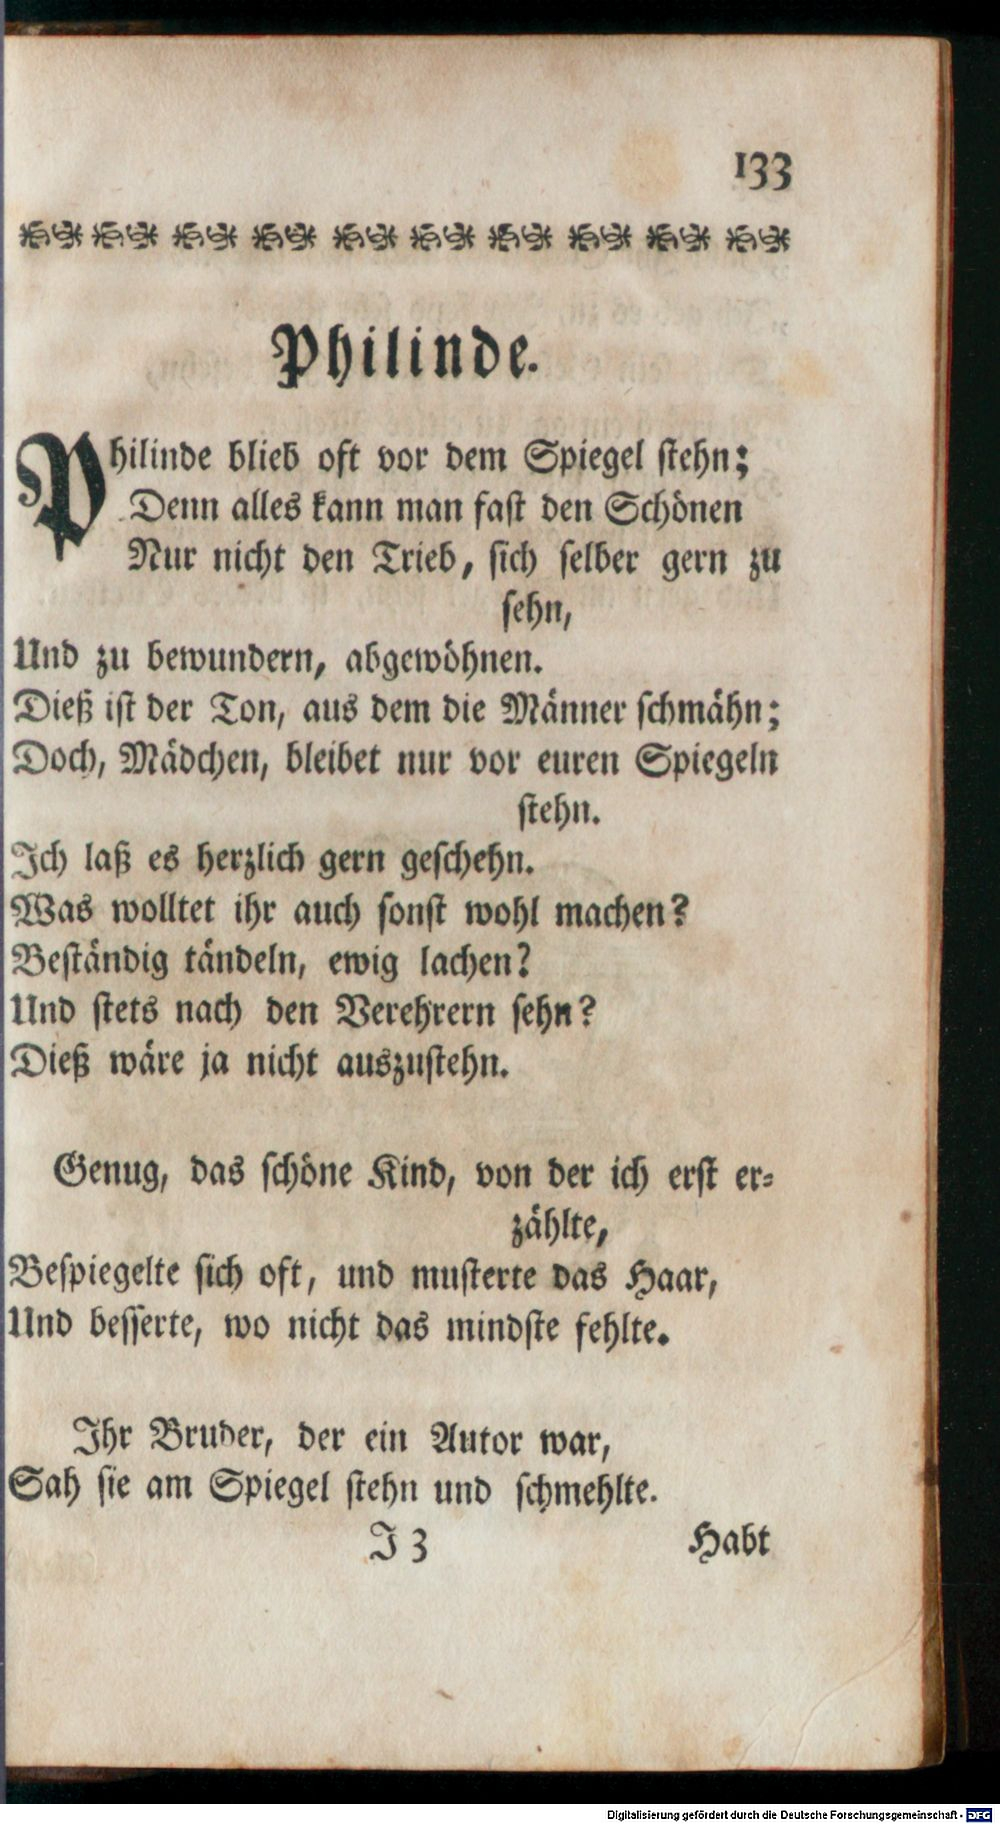 133
Philinde.
Philinde blieb oft vor dem Spiegel stehn;
Denn alles kann man fast den Schönen
Nur nicht den Trieb, sich selber gern zu
sehn,
Und zu bewundern, abgewöhnen.
Dieß ist der Ton, aus dem die Männer schmähn;
Doch, Mädchen, bleibet nur vor euren Spiegeln
stehn.
Ich laß es herzlich gern geschehn.
Was wolltet ihr auch sonst wohl machen?
Beständig tändeln, ewig lachen?
Und stets nach den Verehrern sehn?
Dieß wäre ja nicht auszustehn.
Genug, das schöne Kind, von der ich erst er-
zählte,
Bespiegelte sich oft, und musterte das Haar,
Und besserte, wo nicht das mindste fehlte.
Ihr Bruder, der ein Autor war,
Sah sie am Spiegel stehn und schmehlte.
I 3 Habt
Digitalisierung gefördert durch die Deutsche Forschungsgemeinschaft - DFG